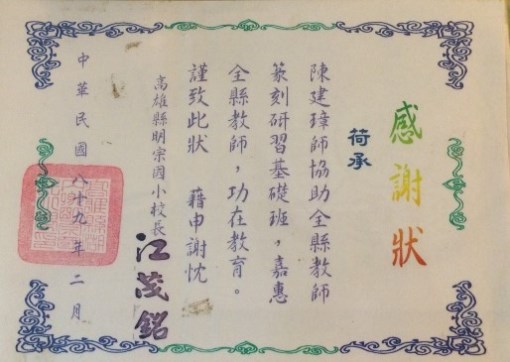 感謝狀
荷承
陳建璋師協助全縣教師
篆刻研習基礎班，嘉惠
全縣教師，功在教育。
謹致此狀　藉申謝忱
高雄縣明宗國小校長 江茂銘
中華民國八十九年二月